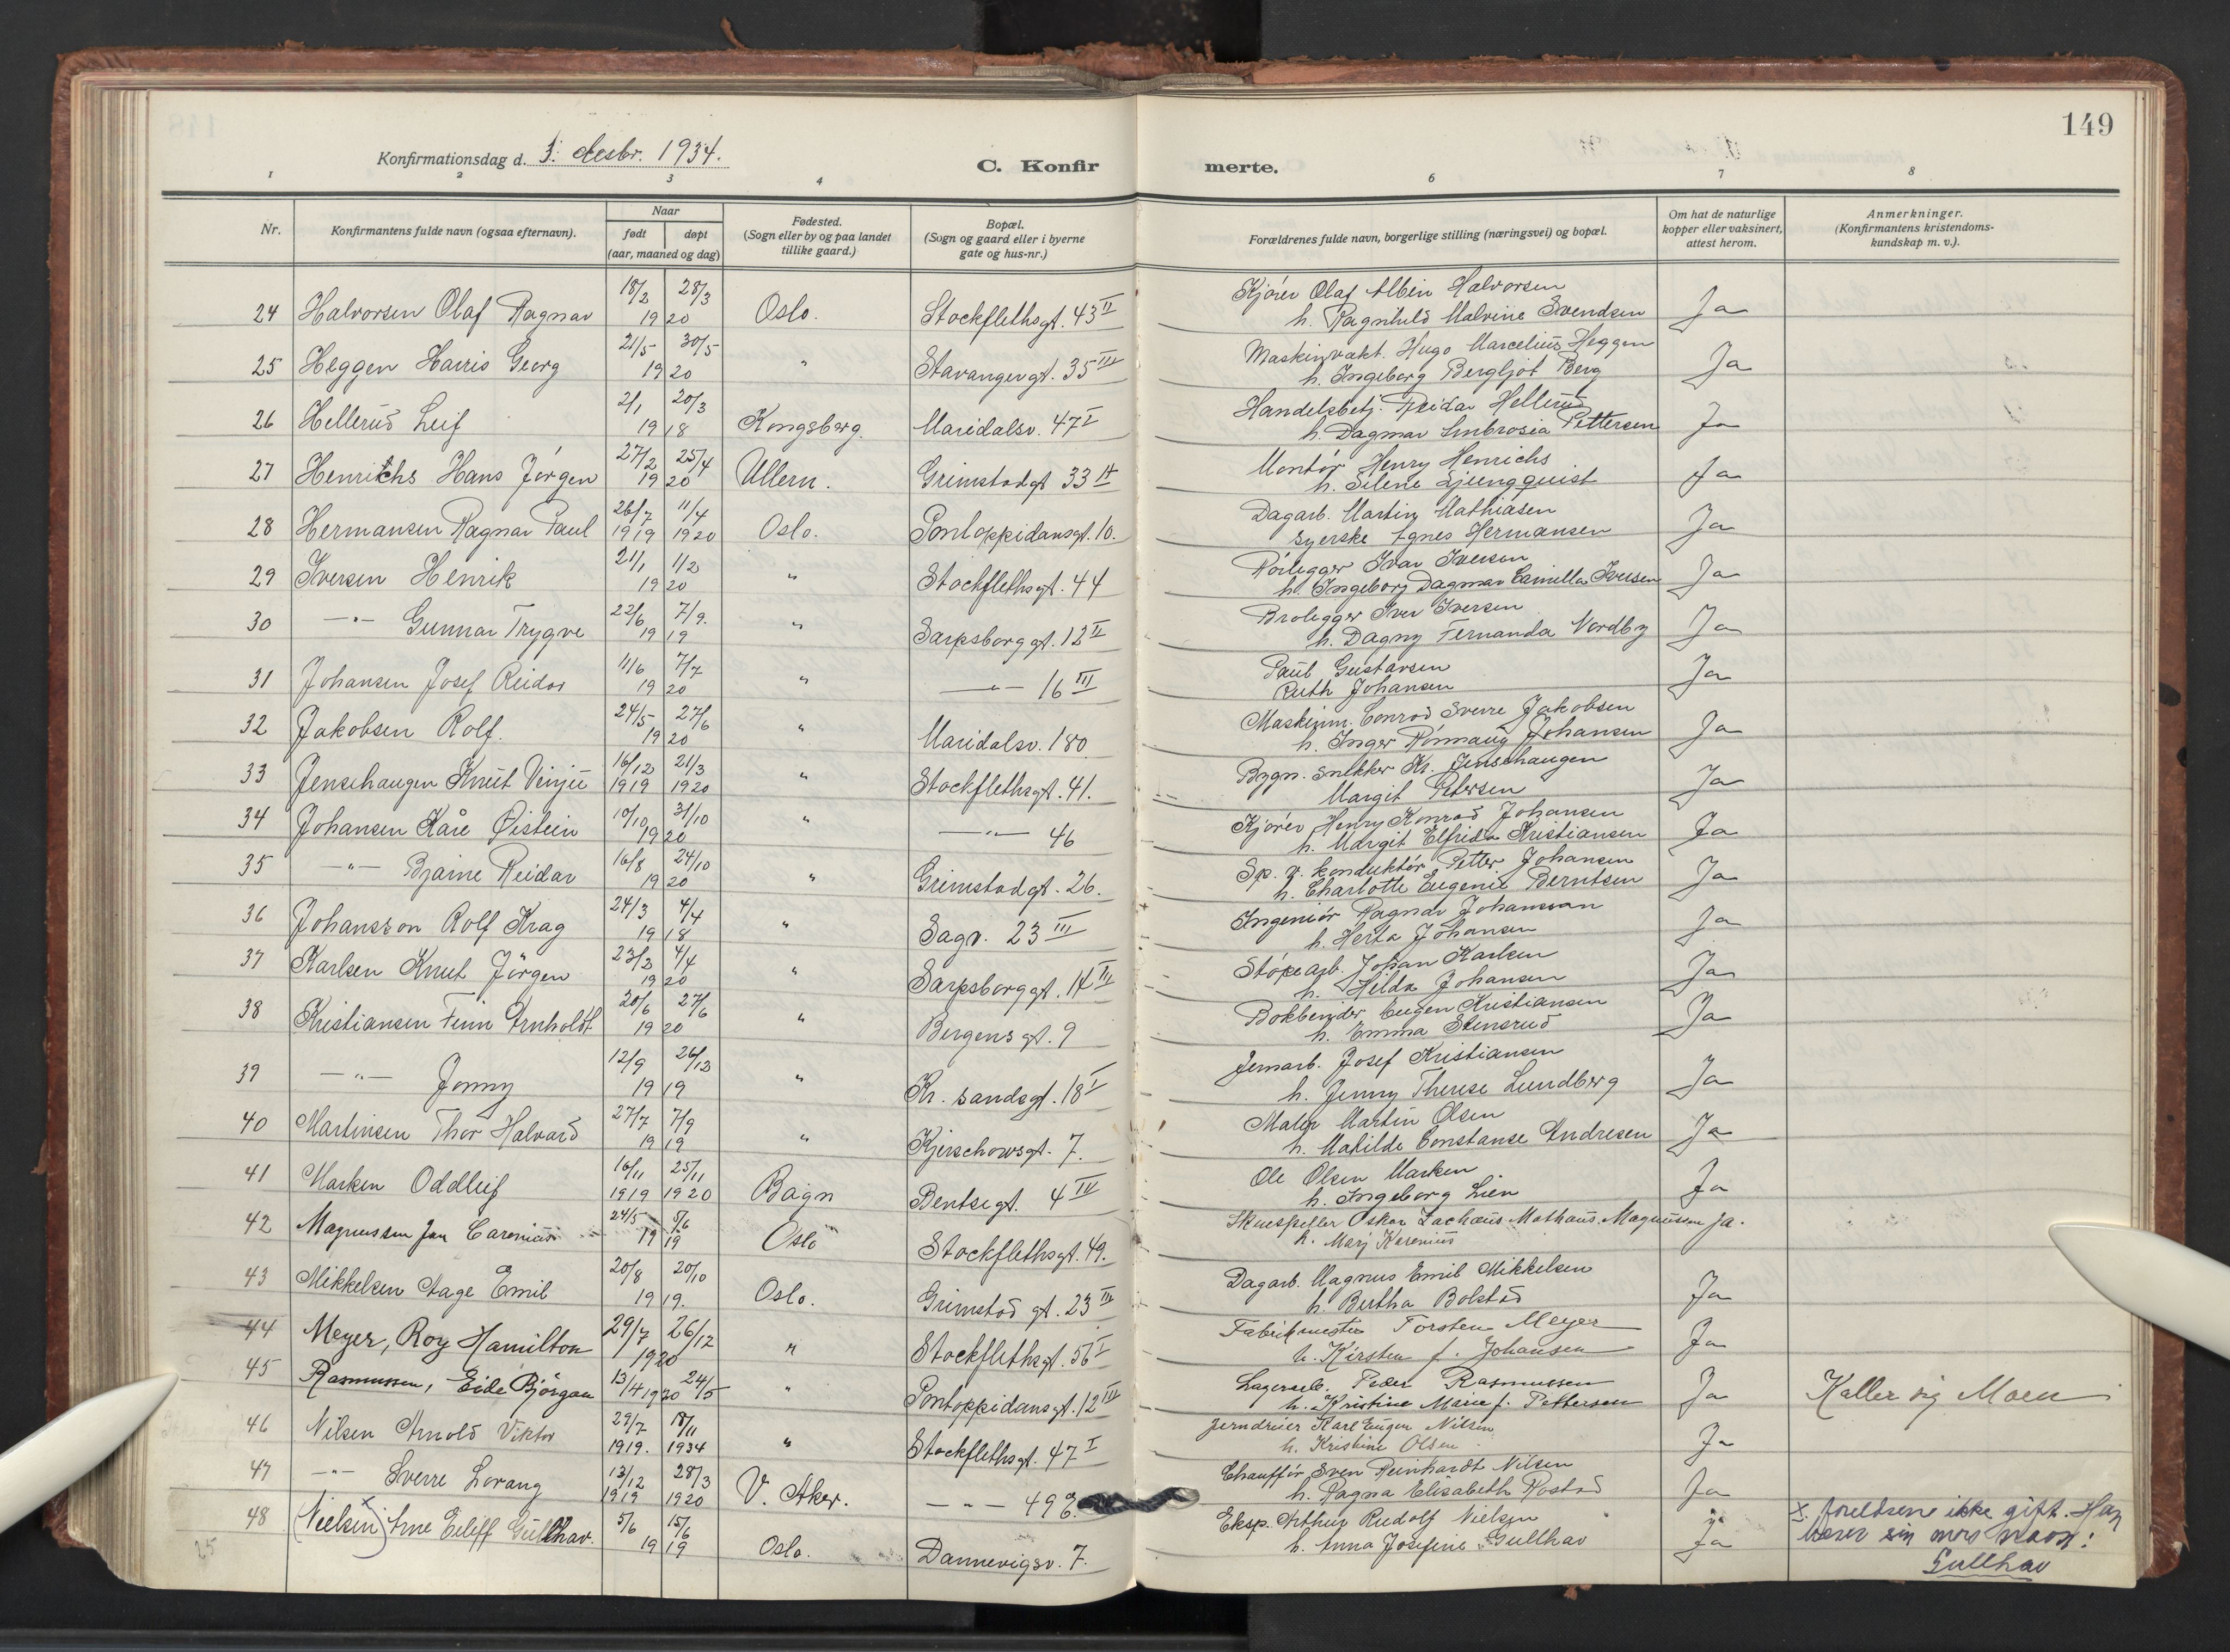 149
Konfirmationsdag d. desbr. 1934.
C. Konfir merte.
1 2 3 4 6 7 8
Nr. Konfirmantens fulde navn (ogsaa efternavn). Naar født døpt (aar, maaned og dag) Fødested. (Sogn eller by og paa landet tillike gaard.) Bopæl. (Sogn og gaard eller i byerne gate og hus-nr.) Forældrenes fulde navn, borgerlige stilling (næringsvei) og bopæl. Om hat de naturlige kopper eller vaksinert, attest herom. Anmerkninger. (Konfirmantens kristendoms-kundskap m. v.).
24 Halvorsen Olaf Ragnar 18/2 28/3 1920 Oslo. Stockflethsgt. 43 II Kjører Olaf Albin Halvorsen
h. Ragnhild Malvine Svendsen Ja
25 Heggen Harris Georg 21/5 30/5 1920 " Stavangergt. 35 III Maskinvakt. Hugo Marcelius Heggen
h. Ingeborg Bergljot Berg Ja
26 Hellerud Leif 2/1 20/3 1918 Kongsberg. Maridalsv. 47 I Handelsbetj. Reidar Hellerud
h. Dagmar Ambrosia Pettersen Ja
27 Henrichs Hans Jørgen 27/2 25/4 1920 Ullern. Grimstadgt 33 II Montør Henry Henrichs
h. Silene Ljungquist Ja
28 Hermansen Ragnar Paul 26/7 1919 11/4 1920 Oslo. Pontoppidansgt. 10. Dagarb. Martin Mathiasen
Syerske Agnes Hermansen Ja
29 Iversen Henrik 21/1 1/2 1920 " Stockflethsgt. 44 Rørlegger Ivar Iversen
h. Ingeborg Dagmar Camilla Iversen Ja
30 — " — Gunnar Trygve 22/6 7/9. 1919 " Sarpsborggt. 12 II Brolegger Iver Iversen
h. Dagny Fernanda Nordby Ja
31 Johansen Josef Reidar 11/6 7/7 1920 " — " — 16 III Paul Gustavsen
Ruth Johansen Ja
32 Jakobsen Rolf. 24/5 27/6 1920 " Maridalsv. 180 Maskinm. Conrad Sverre Jakobsen
h. Inger Rönnaug Johansen Ja
33 Jensehaugen Knut Vinju 16/12 1919 21/3 1920 " Stockflethsgt. 41. Bygn. snekker Kr. Jensehaugen
Margit Petersen Ja
34 Johansen Kåre Øistein 10/10 31/10 1920 " — " — 46 Kjører Henry Konrad Johansen
h. Margit Elfrida Kristiansen Ja
35 — " — Bjarne Reidar 16/8 24/10 1920 " Grimstadgt. 26. Sp. v. konduktör Petter Johansen
h. Charlotte Eugenie Berntsen Ja
36 Johansson Rolf Krag 24/3 4/4 1918 " Sagv. 23 III Ingeniør Ragnar Johansson
h. Herta Johansen Ja
37 Karlsen Knut Jörgen 23/2 4/4 1920 " Sarpsborggt. 14 III Støpearb. Johan Karlsen
h. Hilda Johansen Ja
38 Kristiansen Finn Arnholdt 20/6 27/6 1920 " Bergensgt. 9 Bokbinder Eugen Kristiansen
h. Emma Stensrud Ja
39 — " — Jonny 12/9 26/12 1919 " Kr. sandsgt. 18 I Jernarb. Josef Kristiansen
h. Jenny Therese Lundberg Ja
40 Martinsen Thor Halvard 27/7 7/9 1919 " Kjerschowsgt. 7. Maler Martin Olsen
h. Matilde Constanse Andresen Ja
41 Marken Oddleif 16/11 1919 25/11 1920 Bagn Bentsegt. 4 III Ole Olsen Marken
h. Ingeborg Lien Ja
42 Magnussen Jan Carenius 24/5 5/6 1919 Oslo Stockflethsgt. 49. Skuespeller Oskar Zachæus Mathæus Magnussen
h. Marj Karenius Ja.
43 Mikkelsen Aage Emil 20/8 20/10 1919. Oslo. Grimstad gt. 23 III Dagarb. Magnus Emil Mikkelsen
h. Bertha Bolstad Ja
44 Meyer, Roy Hamilton 29/7 26/12 1920 " Stockflethsgt. 56 I Fabrikmester Torsten Meyer
h. Kirsten f. Johansen Ja
45 Rasmussen, Eide Björgan 13/4 1920 24/5 " Pontoppidansgt. 12 III Lagerarb. Peder Rasmussen
h. Kristine Marie f. Pettersen Ja Kaller sig Moen
46 Nilsen Arnold Viktor 29/7 1919. 18/11 1934 " Stockflethsgt. 47 I Jerndreier Karl Eugen Nilsen
h. Kristine Olsen Ja
47 — " — Sverre Lorang 13/12 1919 28/3 1920 V. Aker. — " — 49 Chauffør Sven Reinhardt Nilsen
h. Ragna Elisabeth Rostad Ja
48 (Nielsen) x Arne Eiliff Gullhav. 5/6 15/6 1919 Oslo. Dannevigsv. 7. Eksp. Arthur Rudolf Nielsen
h. Anna Josefine Gullhav Ja x. foreldrene ikke gift. Han
bærer sin mors navn:
Gullhav